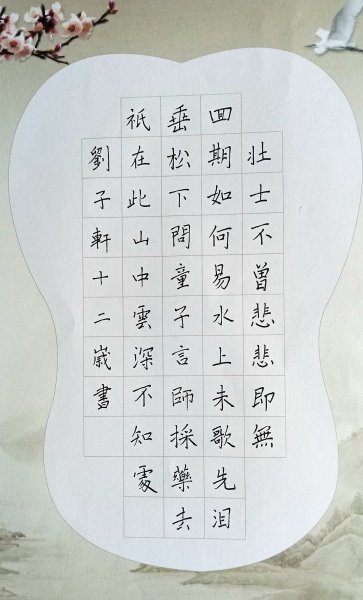 壮士不曾悲悲即無
囬期如何易水上未歌先泪
垂松下問童子言師採藥去
祇在此山中雲深不知處
劉子軒十二嵗書